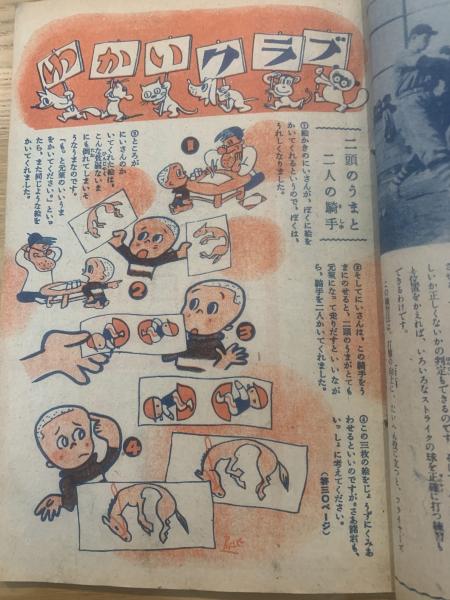 ゆかいクラブ
二頭のうまと
二人の騎手
きしゅ
①絵かきのにいさんが、ぼくに絵を
かいてくれるというので、ぼくは、
うれしくなりました。
②ところが
にいさんのか
いてくれた絵は、
こんな貧弱ないま
にも倒れてしまいそ
うなうまなのです。
「もっと元気のいいうま
をかいてください。」とい
たら、また同じような絵を
かいてくれました。
③そしてにいさんは、この騎手をう
まにのせると、二頭のうまがとても
元気になって走りだすといいなが
ら、騎手を二人かいてくれました。
④この三枚の絵をじょうずにくみあ
わせるといいのですが。さあ諸君も、
いっしょに考えてください。
(答三〇ページ)
1
2
3
4
しいか正しくないかの判定もできるのです。
位置をかえれば、いろいろなストライクの球を正確に打つ練習も
できるわけです。